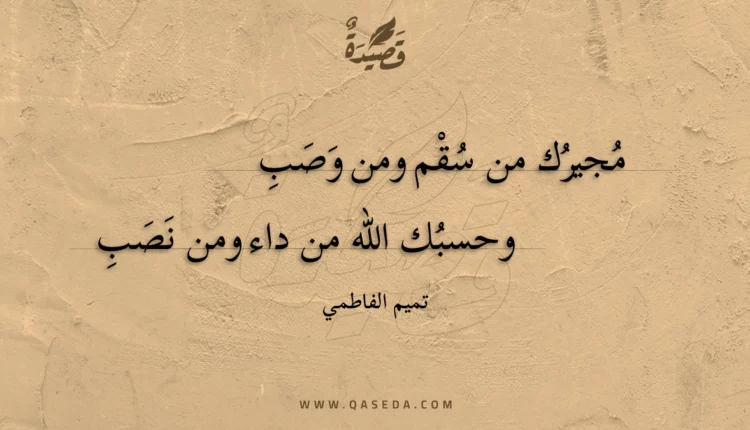 قَصِيدَةٌ
مُجيرُك من سُقْم ومن وَصَبِ
وحسبُك الله من داء ومن نَصَبِ
تميم الفاطمي
WWW.QASEDA.COM